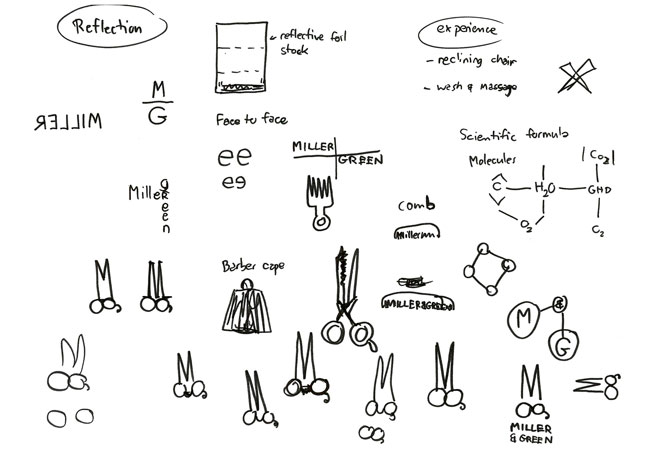 Reflection
reflective foil
stock
experience
- reclining chair
- wash & massage
M
G
ЯƎ⅃⅃IM
Face to face
ee
ee
MILLER
GREEN
Scientific formula
Molecules
CO2
C
H2O
GHD
O2
C2
Miller
green
comb
Barber cape
MILLER&GREEN
M
&
G
M
MILLER
& GREEN